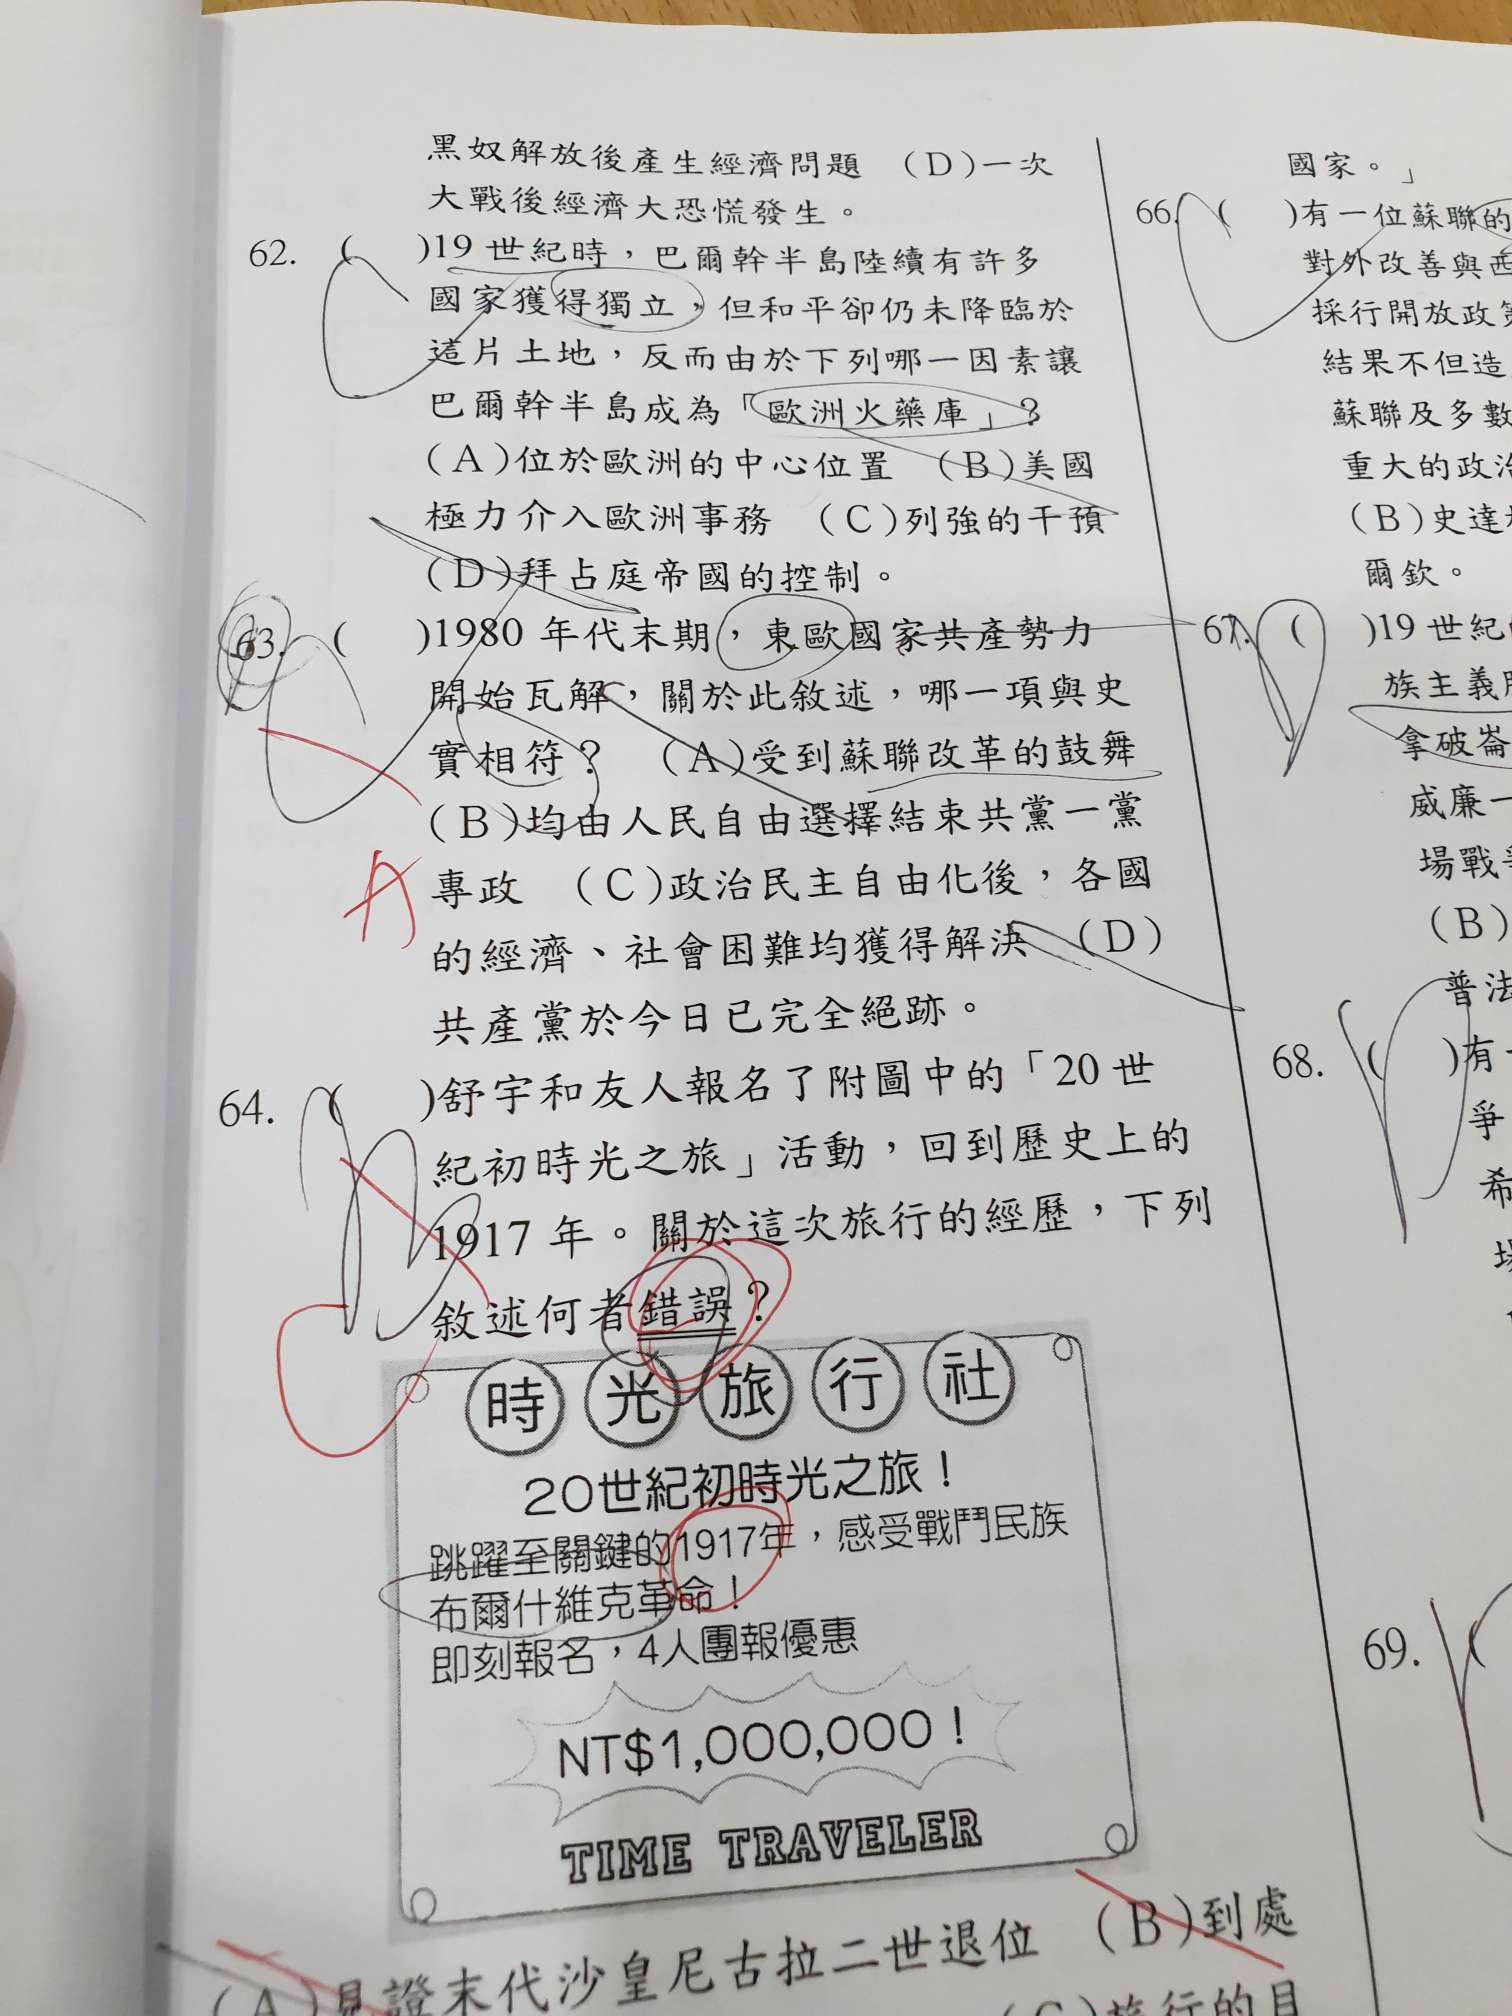 黑奴解放後產生經濟問題 (D)一次
大戰後經濟大恐慌發生。
62. ( )19 世紀時，巴爾幹半島陸續有許多
國家獲得獨立，但和平卻仍未降臨於
這片土地，反而由於下列哪一因素讓
巴爾幹半島成為「歐洲火藥庫」？
(A)位於歐洲的中心位置 (B)美國
極力介入歐洲事務 (C)列強的干預
(D)拜占庭帝國的控制。
63. ( )1980 年代末期，東歐國家共產勢力
開始瓦解，關於此敘述，哪一項與史
實相符？ (A)受到蘇聯改革的鼓舞
(B)均由人民自由選擇結束共黨一黨
A
專政 (C)政治民主自由化後，各國
的經濟、社會困難均獲得解決 (D)
共產黨於今日已完全絕跡。
64. ( )舒宇和友人報名了附圖中的「20 世
紀初時光之旅」活動，回到歷史上的
1917 年。關於這次旅行的經歷，下列
敘述何者錯誤？
時光旅行社
20世紀初時光之旅！
跳躍至關鍵的1917年，感受戰鬥民族
布爾什維克革命！
即刻報名，4人團報優惠
NT$1,000,000！
TIME TRAVELER
(A)見證末代沙皇尼古拉二世退位 (B)到處
(C)旅行的目
國家。」
66. ( )有一位蘇聯的
對外改善與西
採行開放政策
結果不但造
蘇聯及多數
重大的政治
(B)史達
爾欽。
67. ( )19 世紀
族主義
拿破崙
威廉一
場戰爭
(B)
普法
68. ( )有一
爭
希
場
69. (